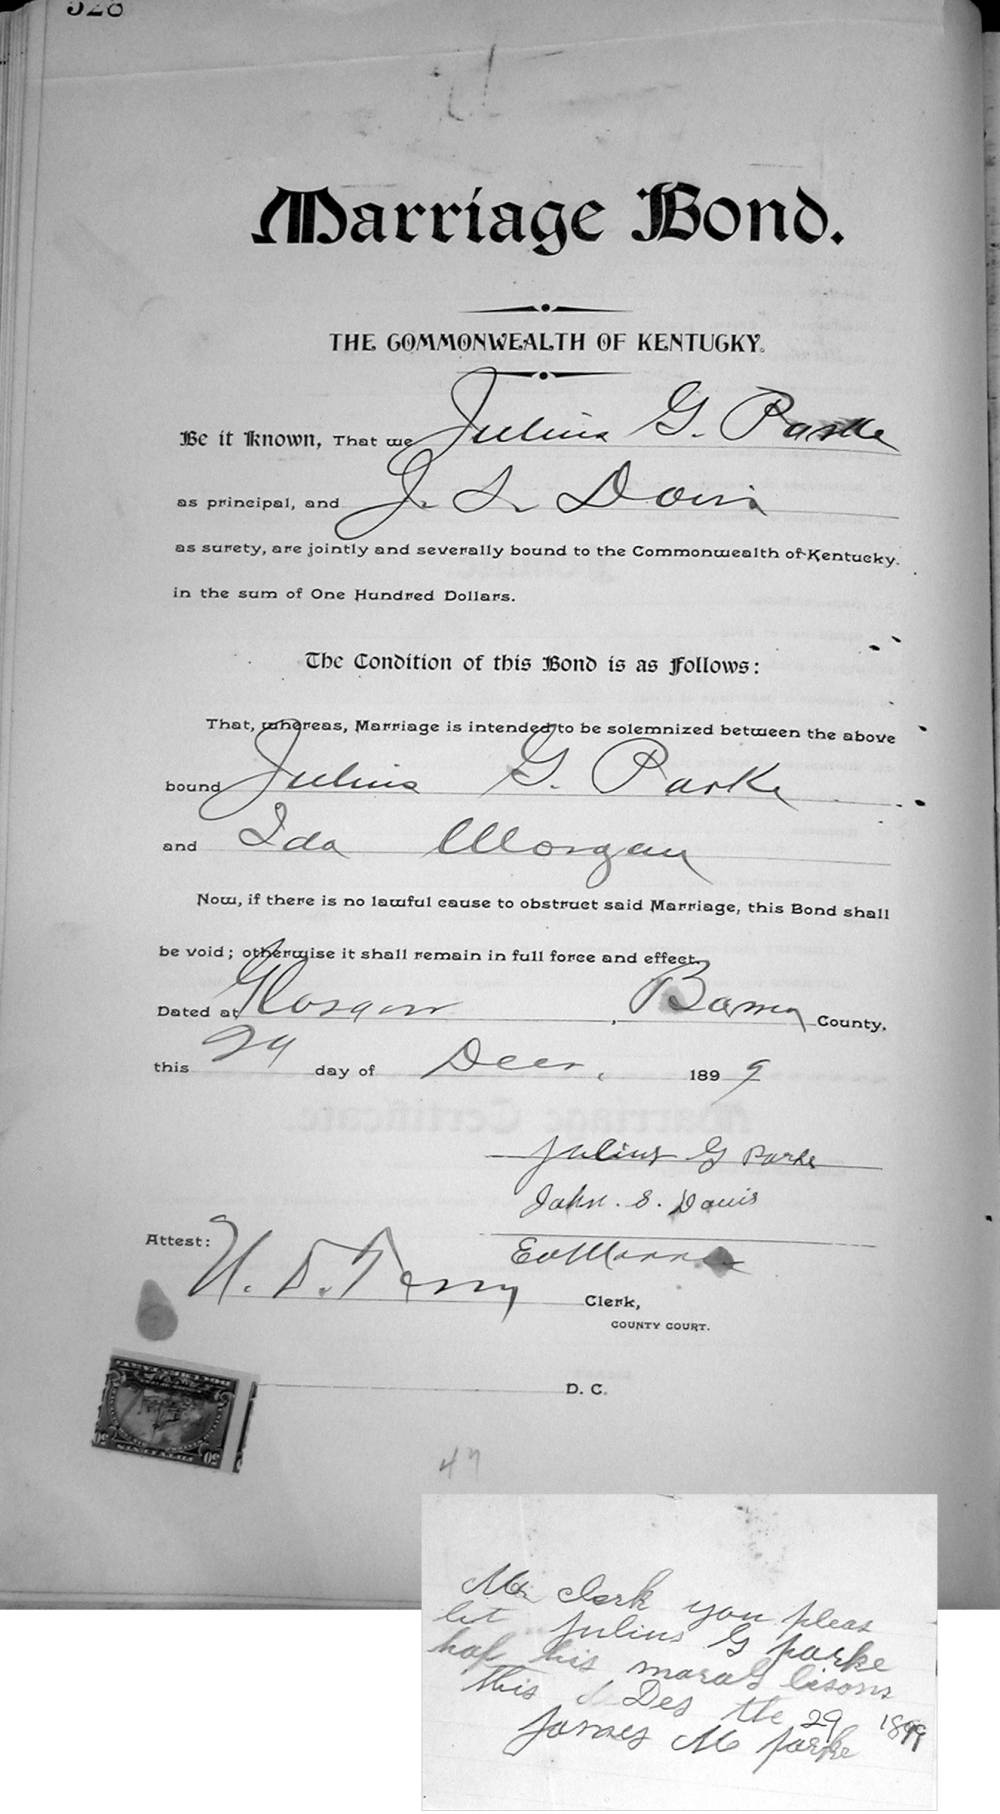 328
Marriage Bond.
THE COMMONWEALTH OF KENTUCKY.
Be it Known, That we Julius G. Parke
as principal, and J. S. Davis
as surety, are jointly and severally bound to the Commonwealth of Kentucky.
in the sum of One Hundred Dollars.
The Condition of this Bond is as Follows:
That, whereas, Marriage is intended to be solemnized between the above
bound Julius G. Parke
and Ida Morgan
Now, if there is no lawful cause to obstruct said Marriage, this Bond shall
be void; otherwise it shall remain in full force and effect.
Dated at Glasgow, Barren County,
this 29 day of Decr, 1899
Julius G Parke
John. S. Davis
Attest:
W. D. Terry Clerk,
COUNTY COURT.
D. C.
47
Mr Clerk you pleas
let Julius G parke
haf his marag lisons
this Des the 29 1899
James M parke